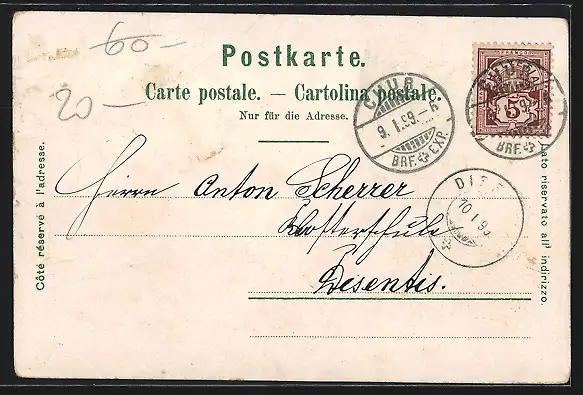 60 –
20 –
Postkarte.
Carte postale. — Cartolina postale.
Nur für die Adresse.
CHUR
9. I. 99.
BRF. EXP.
5
BRF. EXP.
Côté réservé à l'adresse.
Lato riservato all' indirizzo.
Herrn Anton Scherrer
Klosterschule
Disentis.
DISE
10 I 99